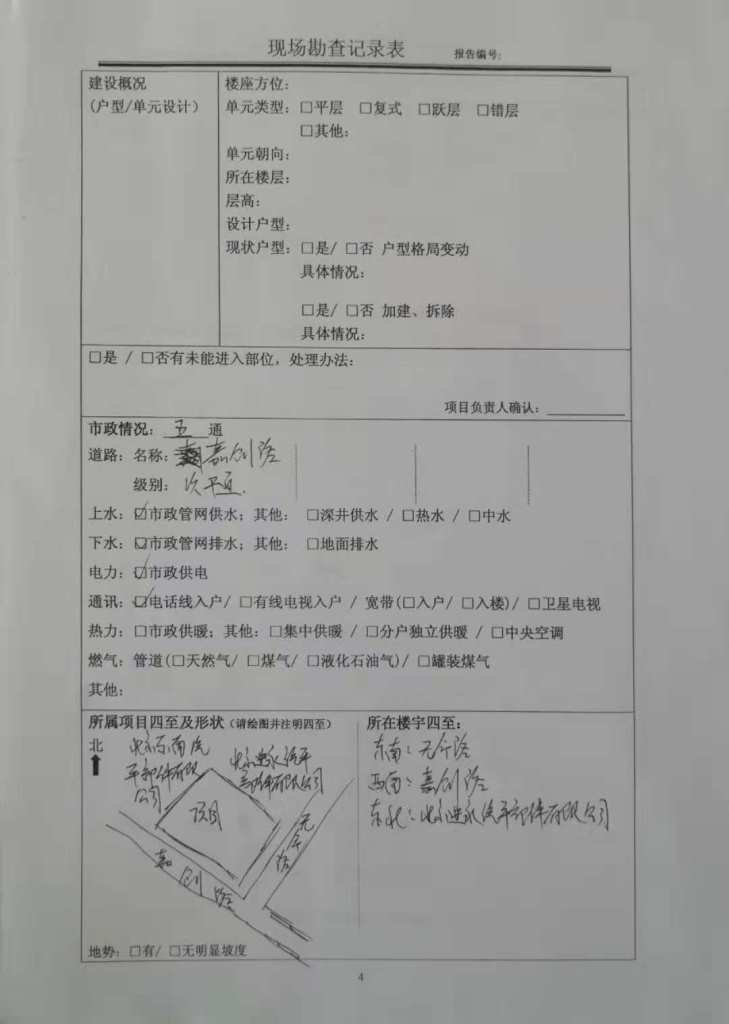 现场勘查记录表
报告编号:
建设概况
(户型/单元设计)
楼座方位:
单元类型: □平层 □复式 □跃层 □错层
□其他:
单元朝向:
所在楼层:
层高:
设计户型:
现状户型: □是/ □否 户型格局变动
具体情况:
□是/ □否 加建、拆除
具体情况:
□是 / □否有未能进入部位, 处理办法:
项目负责人确认:
市政情况: 五 通
道路: 名称: 嘉创路
级别: 次干道.
上水: ☑市政管网供水; 其他: □深井供水 / □热水 / □中水
下水: ☑市政管网排水; 其他: □地面排水
电力: ☑市政供电
通讯: ☑电话线入户/ □有线电视入户 / 宽带(□入户/ □入楼)/ □卫星电视
热力: □市政供暖; 其他: □集中供暖 / □分户独立供暖 / □中央空调
燃气: 管道(□天然气/ □煤气/ □液化石油气)/ □罐装煤气
其他:
所属项目四至及形状 (请绘图并注明四至)
北
北京 南汽
车部件有限
公司
北京 汽车
部件有限公司
项目
路
嘉创路
地势: □有/ □无明显坡度
所在楼宇四至:
东南: 路
西南: 嘉创路
东北: 北京 汽车部件有限公司
4